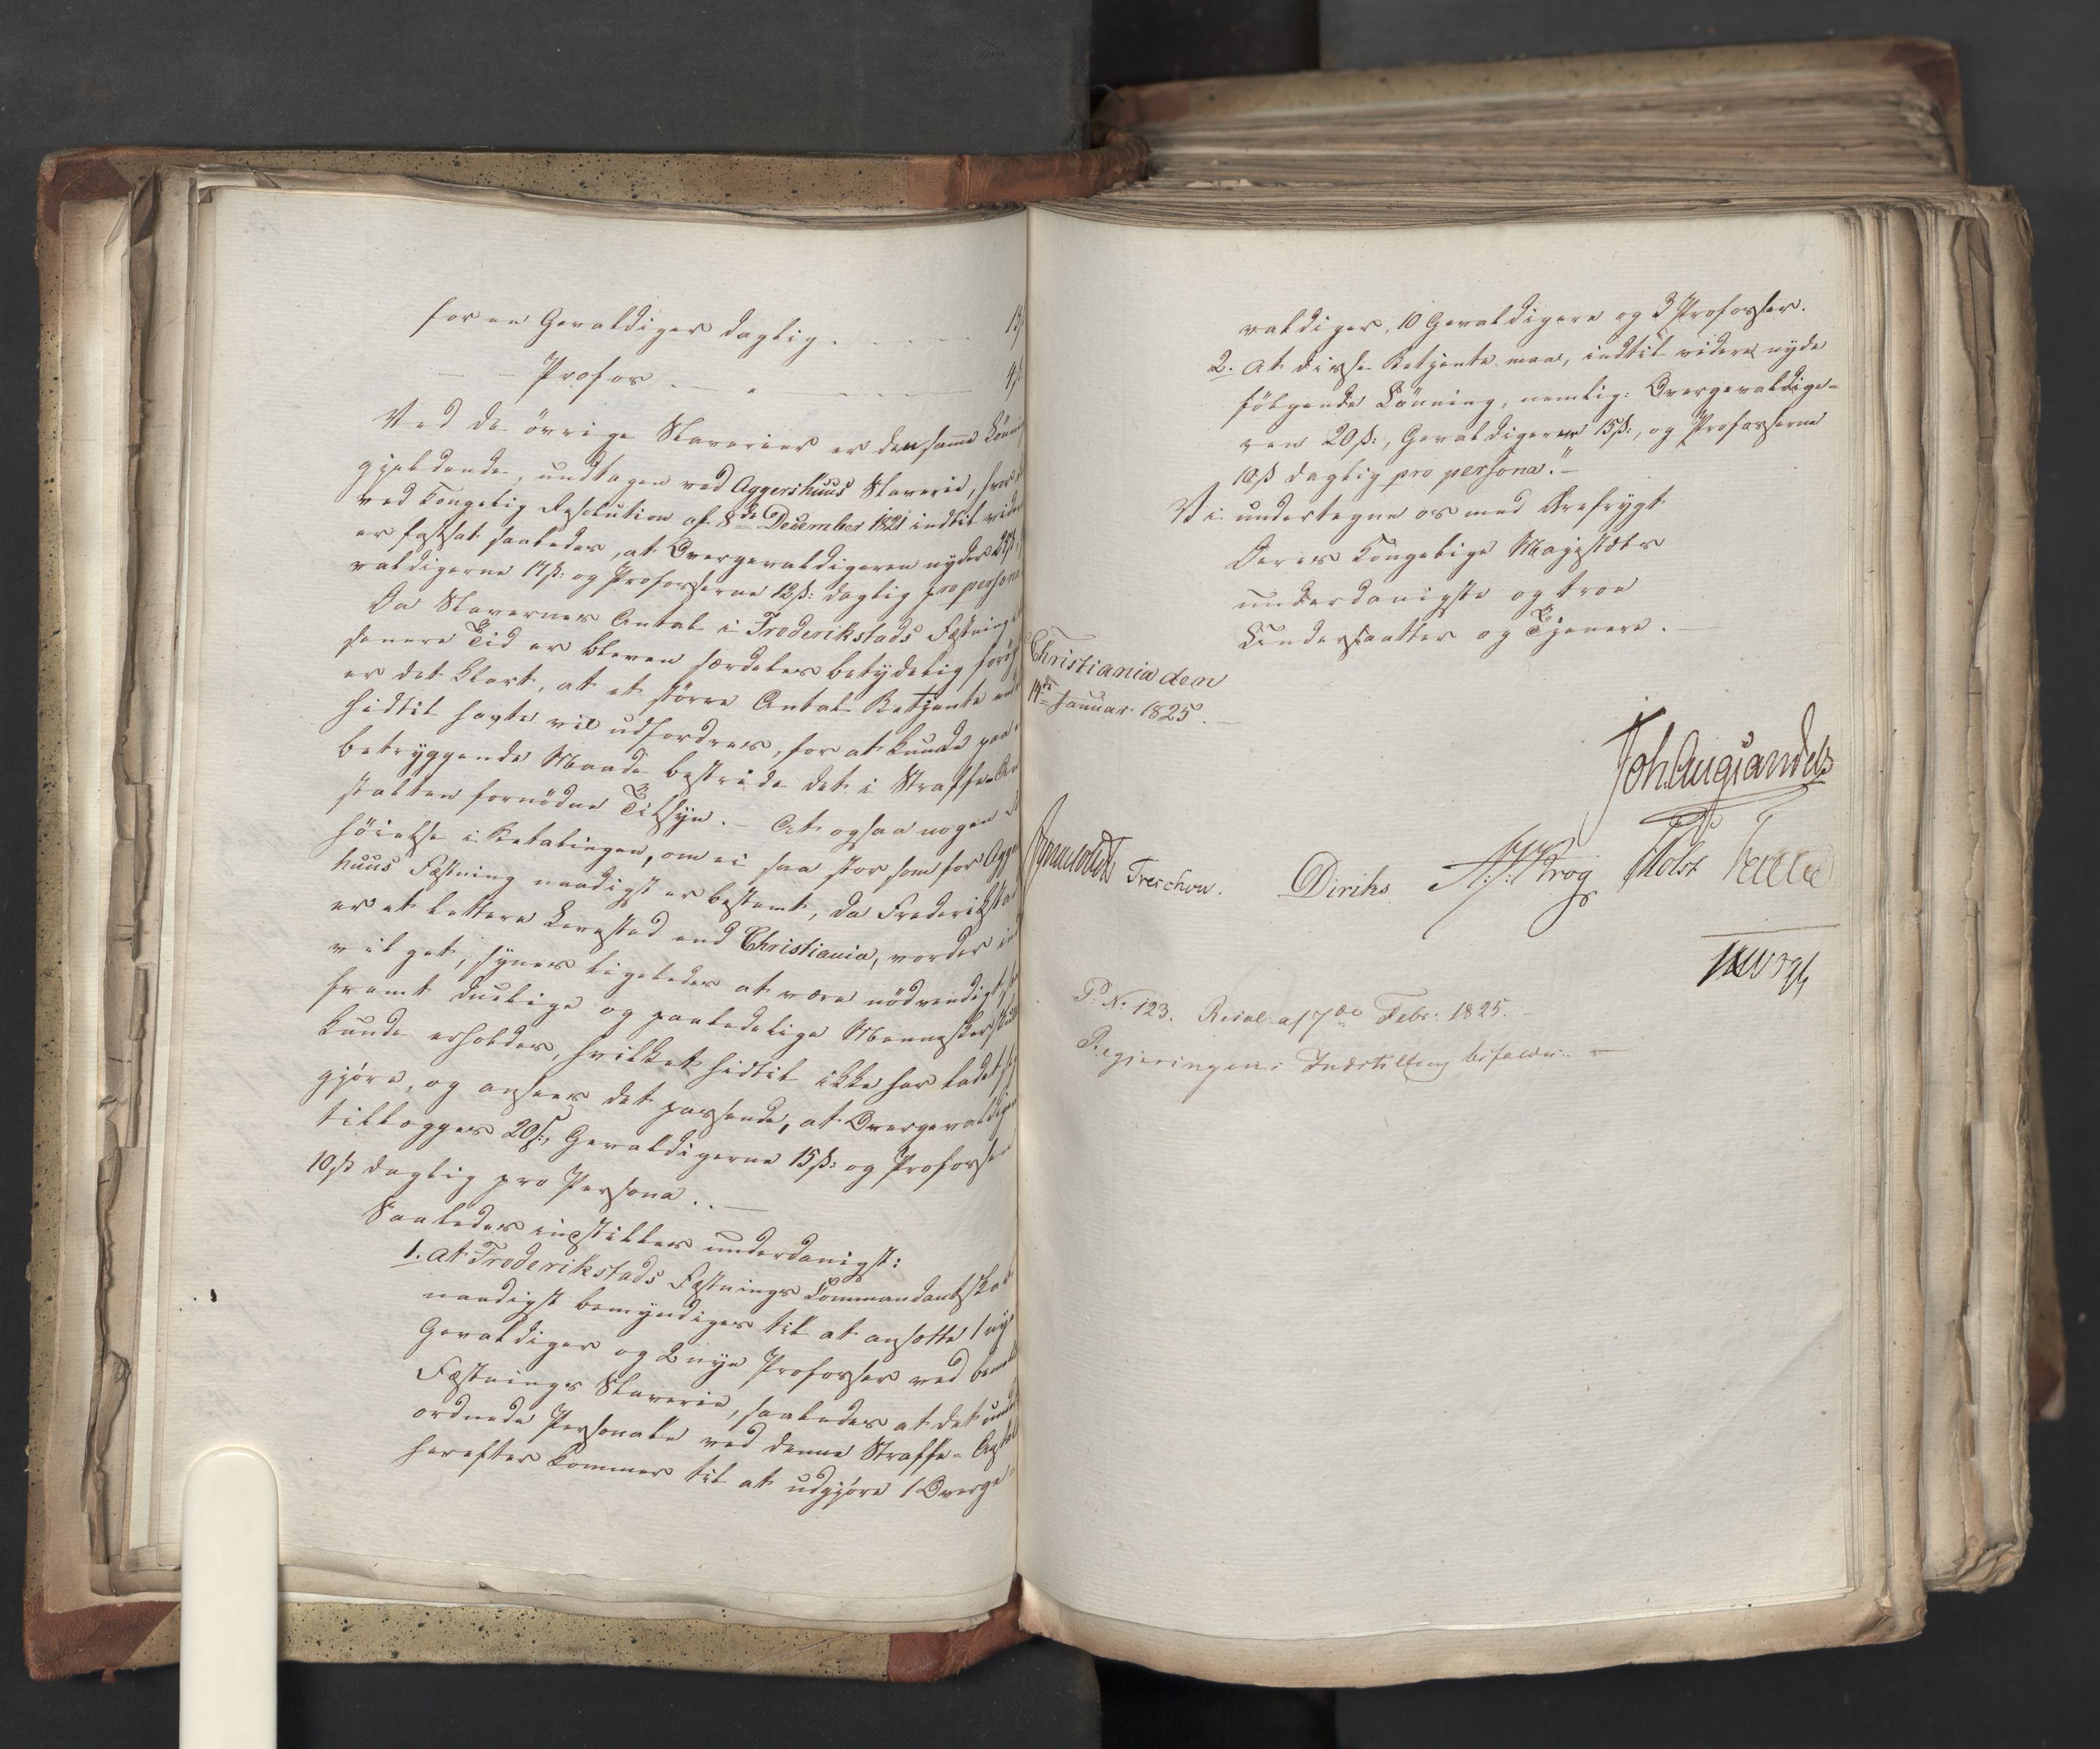 for en Gevaldiger daglig . - - - - 13
— — Profos . — . — — — 9
Ved de øvrige Slaverier er den samme Lønning
gjeldende, undtagen ved Aggershuus Slaverie, hvor
ved Kongelig Resolution af 8de December 1821 indtil videre
er fastsat saaledes, at Overgevaldigeren nyder
valdigerne 17ß: og Profosserne 12ß: daglig pro persona
Da Slavernes Antal i Frederikstads Fæstning i
senere Tid er bleven særdeles betydelig forøget
er det klart, at et større Antal Betjente end
hidtil havte vil udfordres, for at kunde paa
betryggende Maade bestride det i Straffe-An
stalten fornødne Tilsyn. — At ogsaa nogen
høielse i Betalingen, om ei saa stor som for Agger
huus Fæstning naadigst er bestemt, da Frederikstad
er et lettere Levested end Christiania, vorder ind
vilget, synes ligeledes at være nødvendigt,
fremt duelige og paalidelige Mennesker skulle
kunde erholdes, hvilket hidtil ikke har ladet sig
gjøre, og ansees det passende, at Overgevaldigeren
tillægges 20ß:, Gevaldigerne 15ß: og Profosserne
10ß daglig pro Persona. . —
Saaledes indstilles underdanigst:
1. at Frederikstads Fæstnings Commandantskab
naadigst bemyndiges til at ansætte 1 ny
Gevaldiger og 2 nye Profosser ved bemeldte
Fæstnings Slaverie, saaledes at det under
ordnede Personale ved denne Straffe-Anstalt
herefter kommer til at udgjøre 1 Overge-
valdiger, 10 Gevaldigere og 3 Profosser.
2. At disse Betjente maa, indtil videre nyde
følgende Lønning, nemlig: Overgevaldige-
ren 20ß:, Gevaldigeren 15ß:, og Profosserne
10ß daglig pro persona." —
Vi undertegne os med Ærefrygt
Deres Kongelige Majestæts
underdanigste og troe
Undersaatter og Tjenere. —
Christiania den
14de Januar 1825. —
Joh. Aug. Sandels
Treschow. Diriks. Krog Holst
P: No 123. Resol: af 7de Febr: 1825. —
Regjeringens Indstilling bifaldes. —